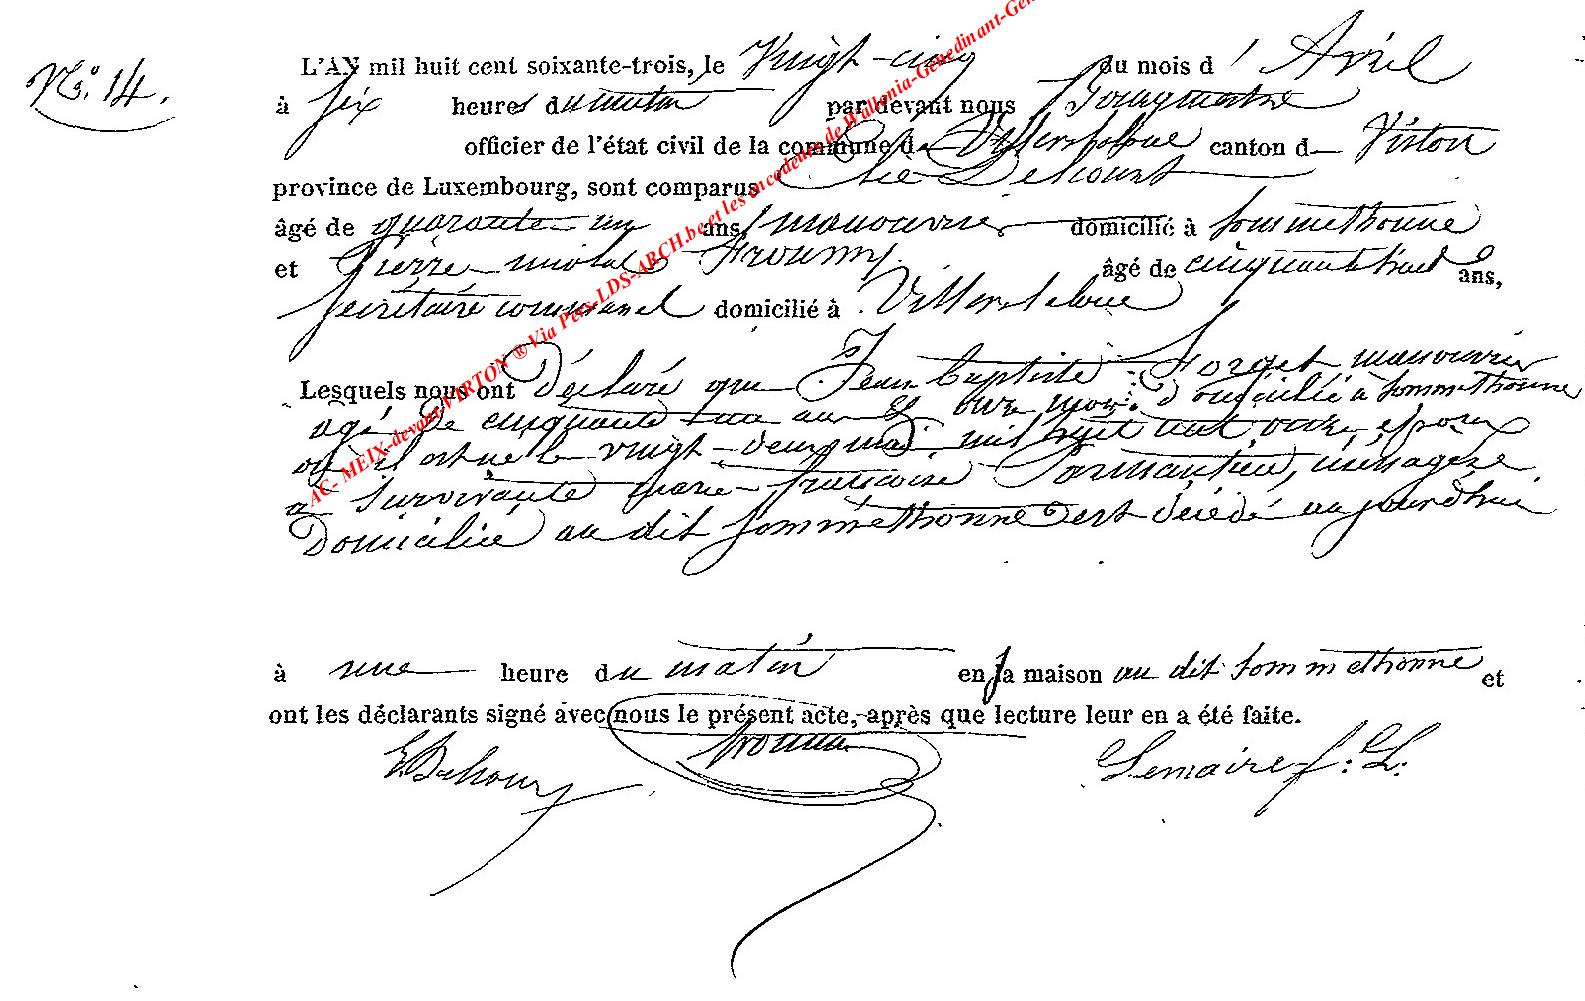 N°. 14.
L'AN mil huit cent soixante-trois, le Vingt-cinq du mois d'Avril
à six heures du matin par devant nous Bourgmestre
officier de l'état civil de la commune de Villerslaloue canton d Virton
province de Luxembourg, sont comparus Elie Dehount
âgé de quarante un ans manouvrier domicilié à Sommethonne
et Pierre nicolas âgé de cinquante huit ans,
secrétaire communal domicilié à Villerslaloue
Lesquels nous ont Déclaré que Jean Baptiste Forget manouvrier
agé de cinquante un an & onze mois Domicilié à Sommethonne
où il est né le vingt-deux mai mil huit cent onze, époux
a survivante Marie-françoise Parmentier, ménagère
Domiciliée au dit Sommethonne est décédé aujourdhui
à une heure du matin en la maison au dit Sommethonne et
ont les déclarants signé avec nous le présent acte, après que lecture leur en a été faite.
Lemaire f: L:
AC- MEIX-devant-VIRTON ® Via Pets-LDS-ARCH.be et les encodeurs de Wallonia-Genedinant-Gen